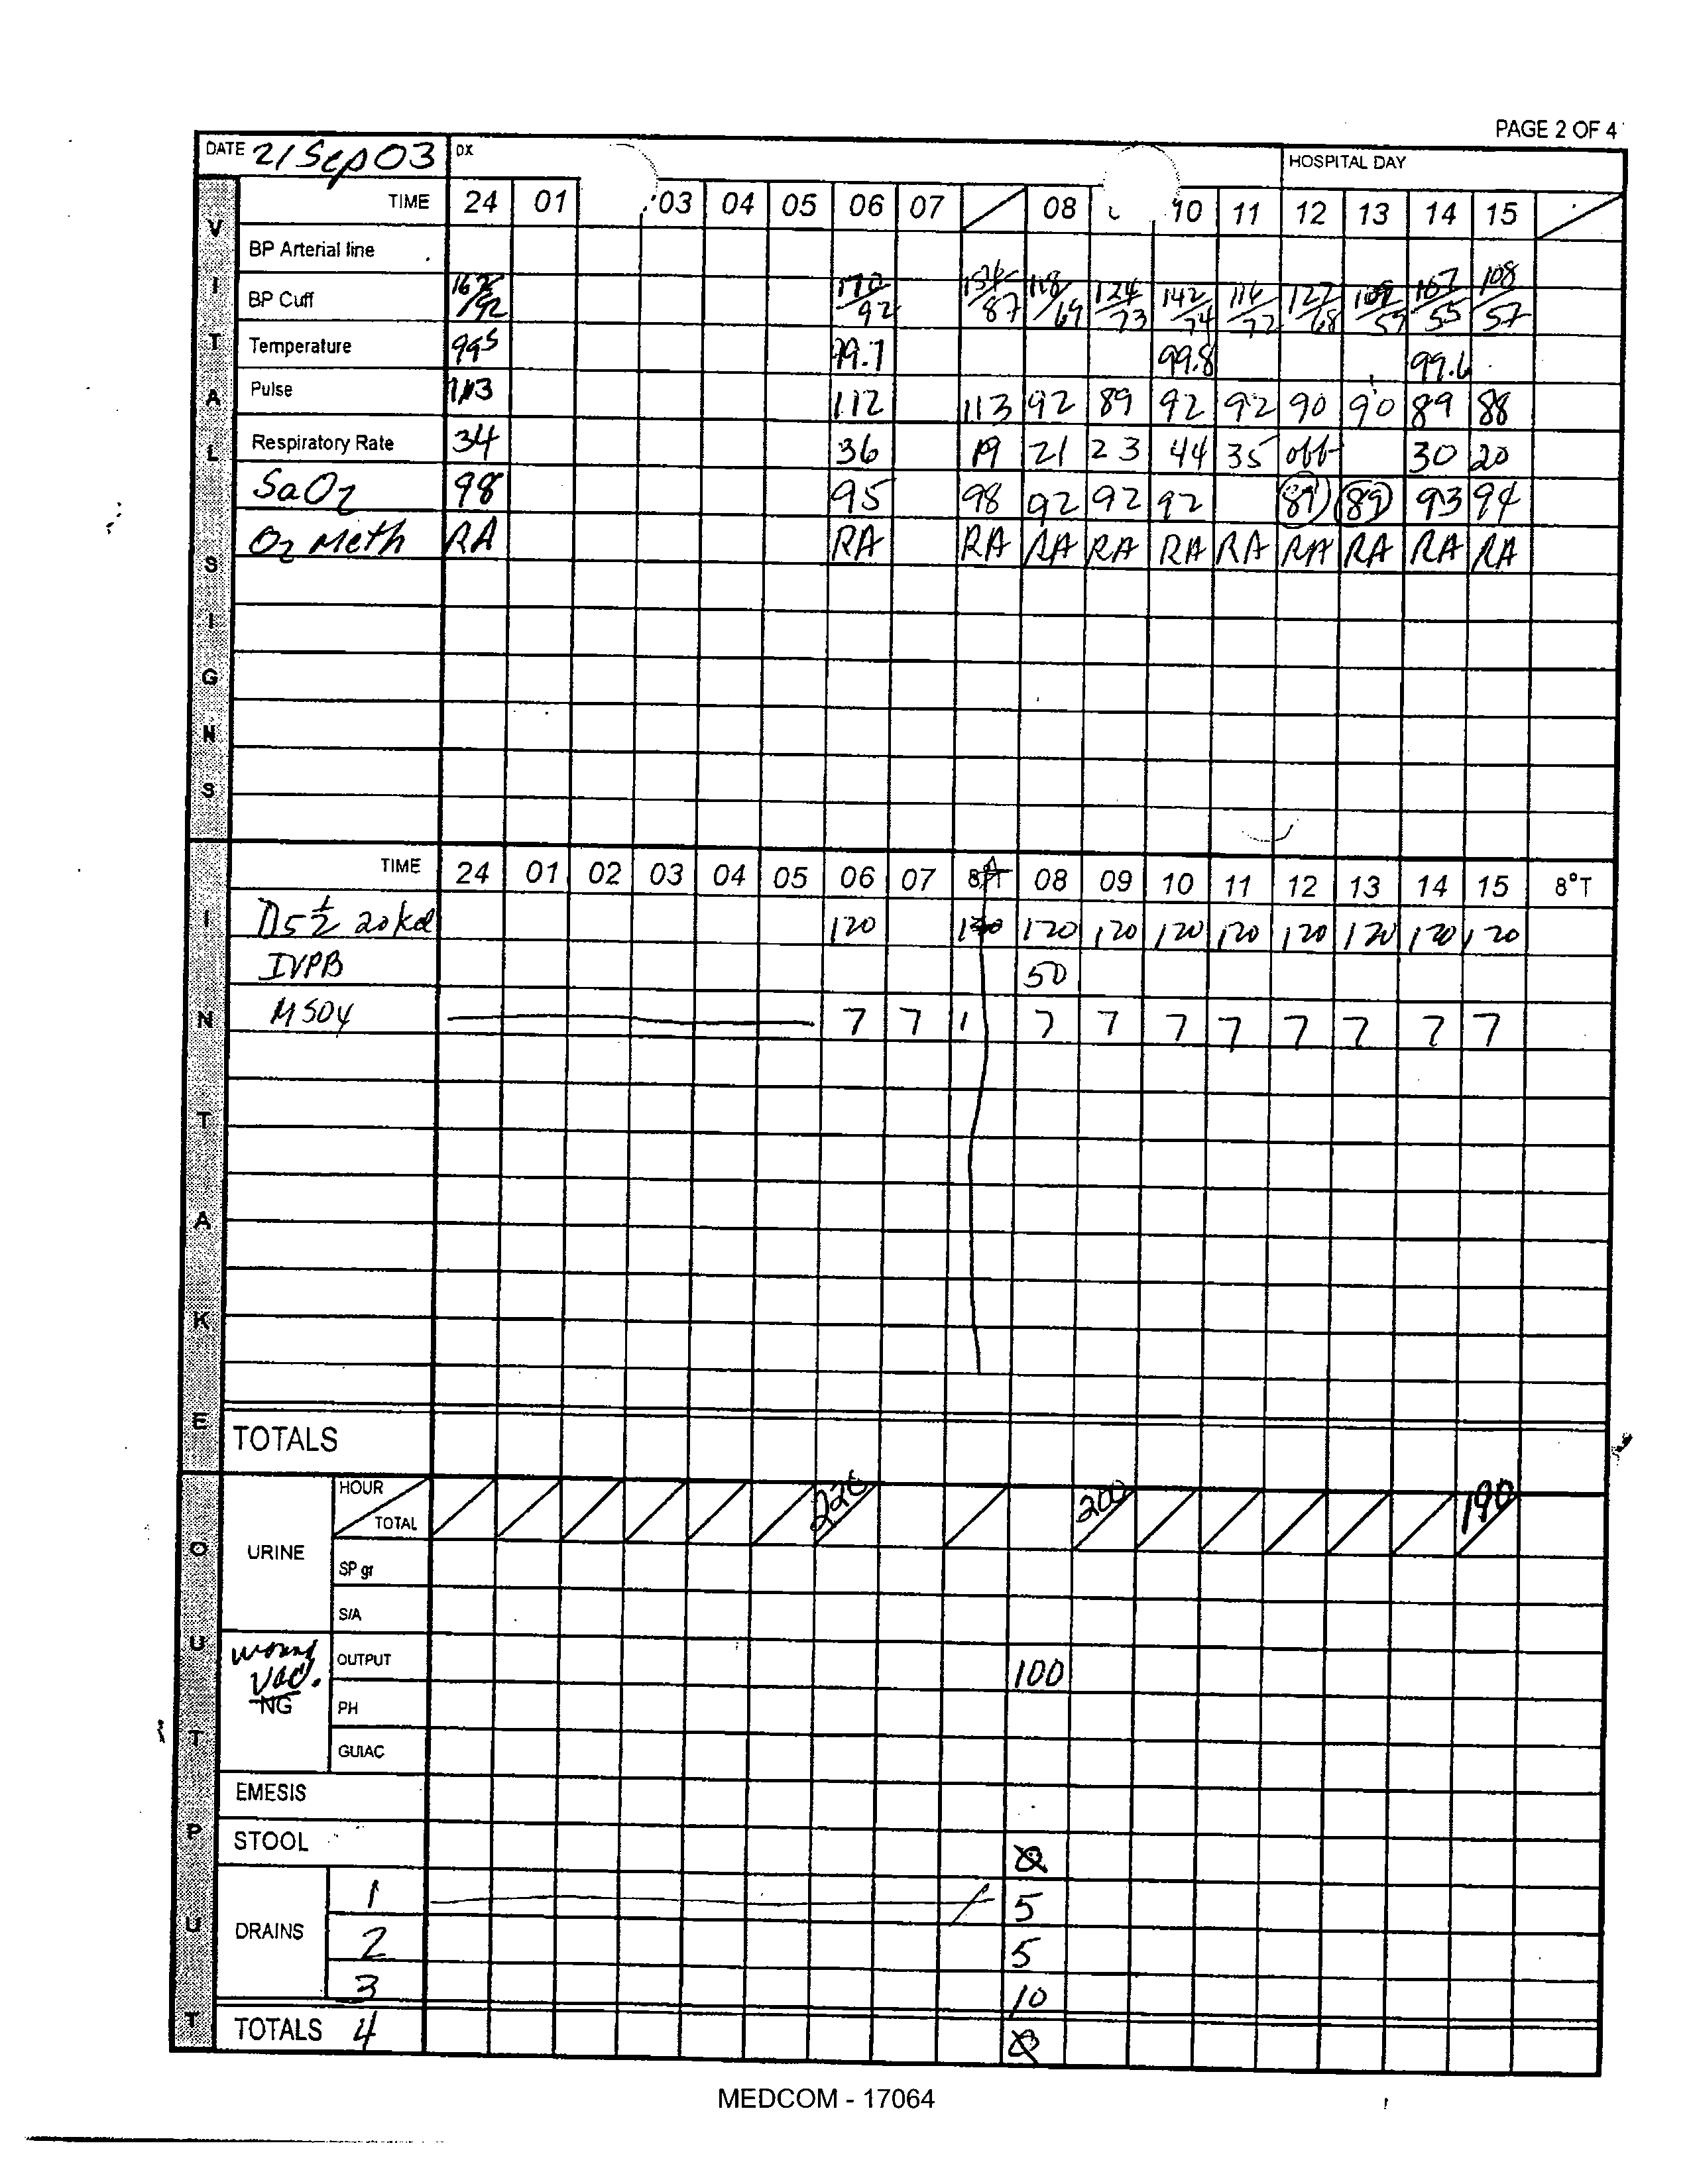 PAGE 2 OF 4
DATE 21 Sep 03 DX HOSPITAL DAY
VITAL SIGNS
TIME 24 01 03 04 05 06 07 08 10 11 12 13 14 15
BP Arterial line
BP Cuff 162/92 170/92 134/87 118/69 124/73 142/74 116/72 127/68 109/57 107/55 108/57
Temperature 99⁵ 99.7 99.8 99.6
Pulse 113 112 113 92 89 92 92 90 90 89 88
Respiratory Rate 34 36 19 21 23 44 35 off 30 20
SaO2 98 95 98 92 92 92 89 89 93 94
O2 Meth RA RA RA RA RA RA RA RA RA RA RA
INTAKE
TIME 24 01 02 03 04 05 06 07 8°T 08 09 10 11 12 13 14 15 8°T
D5 ½ 20 kcl 120 120 120 120 120 120 120 120 120 120
IVPB 50
MSO4 7 7 1 7 7 7 7 7 7 7 7
TOTALS
OUTPUT
URINE HOUR TOTAL 220 200 190
SP gr
S/A
wound vac. NG OUTPUT 100
PH
GUIAC
EMESIS
STOOL 0
DRAINS 1 5
2 5
3 10
TOTALS 4 0
MEDCOM - 17064